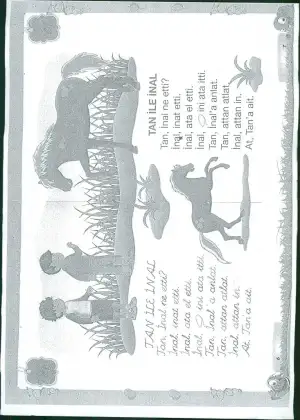 TAN İLE İNAL
Tan, İnal ne etti?
İnal, inat etti.
İnal, ata el etti.
İnal, ini ata itti.
Tan, İnal'a anlat.
Tan, attan atlat.
İnal, attan in.
At, Tan'a ait.
TAN İLE İNAL
Tan, İnal ne etti?
İnal, inat etti.
İnal, ata el etti.
İnal, ini ata itti.
Tan, İnal'a anlat.
Tan, attan atlat.
İnal, attan in.
At, Tan'a ait.